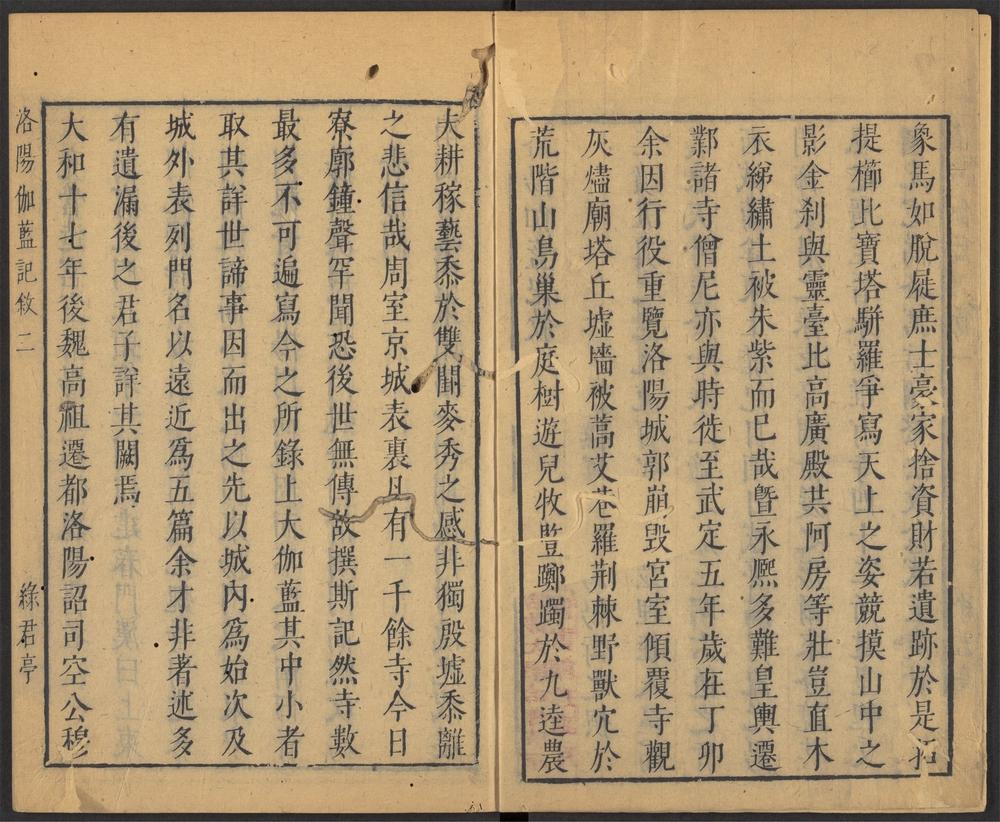 象馬如脫屣庶士豪家捨資財若遺跡於是招
提櫛比寶塔駢羅爭寫天上之姿競摸山中之
影金刹與靈臺比高廣殿共阿房等壯豈直木
衣綈繡土被朱紫而已哉曁永熈多難皇輿遷
鄴諸寺僧尼亦與時徙至武定五年歲在丁卯
余因行役重覽洛陽城郭崩毀宮室傾覆寺觀
灰燼廟塔丘墟墻被蒿艾巷羅荆棘野獸穴於
荒階山鳥巢於庭樹遊兒牧豎躑躅於九逵農
夫耕稼藝黍於雙闕麥秀之感非獨殷墟黍離
之悲信哉周室京城表裏凡有一千餘寺今日
寮廓鐘聲罕聞恐後世無傳故撰斯記然寺數
最多不可遍寫今之所錄上大伽藍其中小者
取其詳世諦事因而出之先以城內爲始次及
城外表列門名以遠近爲五篇余才非著述多
有遺漏後之君子詳其闕焉
大和十七年後魏高祖遷都洛陽詔司空公穆
洛陽伽藍記敘 二 綠君亭